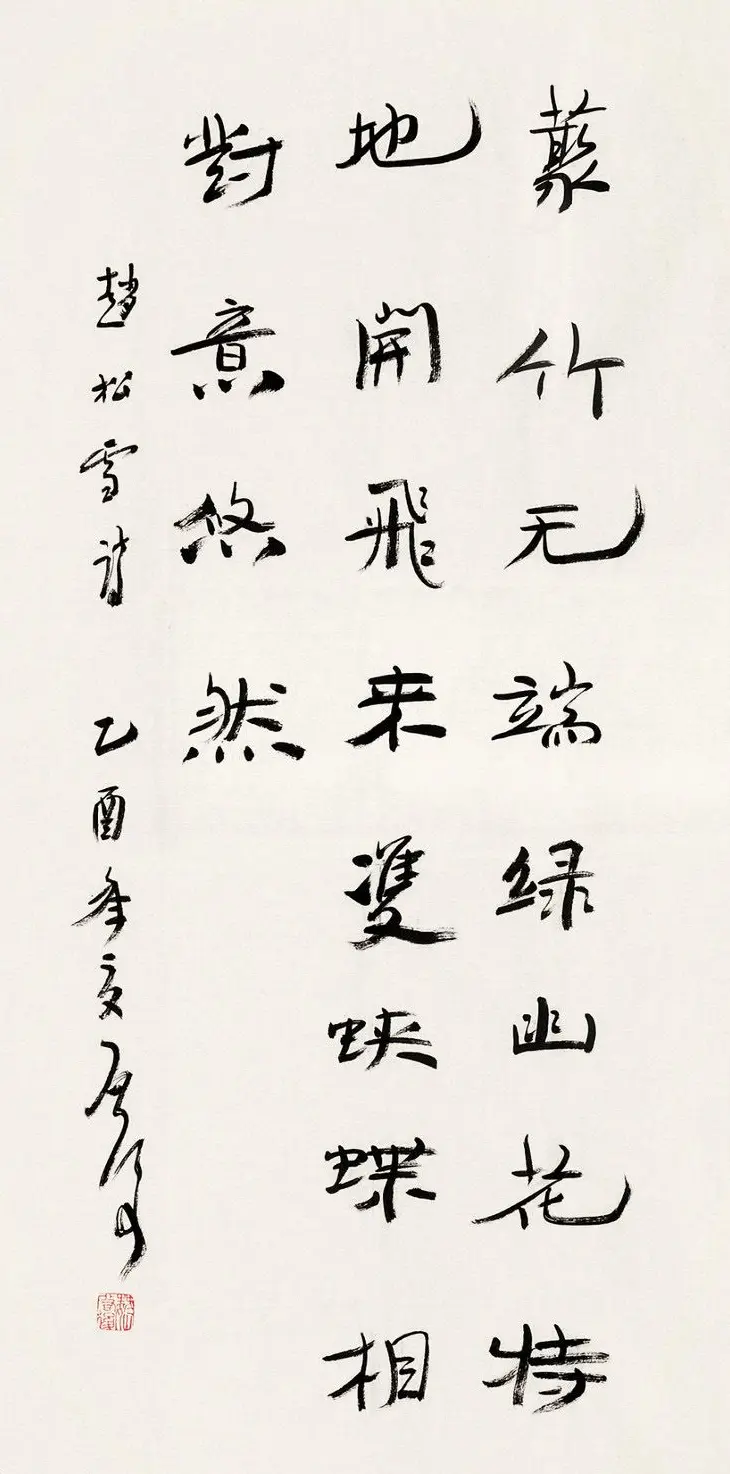 藂竹无端绿幽花特
地開飛来雙蛱蝶相
對意悠然
趙松雪詩 乙酉年夏